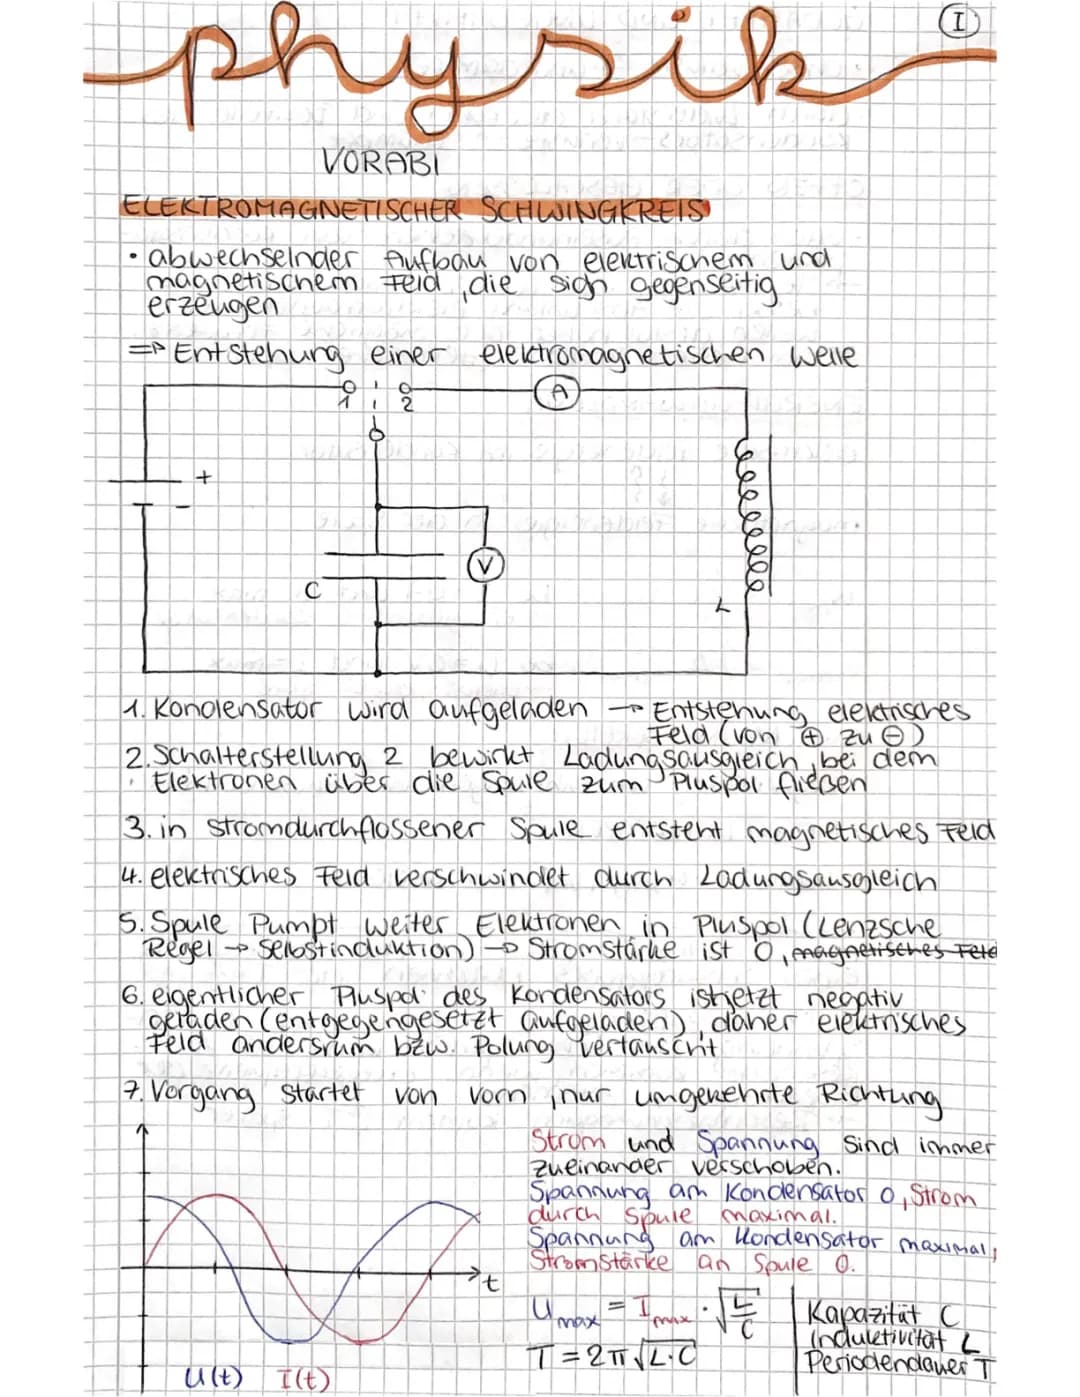 physik
I
VORABI
ELEKTROMAGNETISCHER SCHWINGKREIS
• abwechselnder Aufbau von elektrischem und
magnetischem Feld, die sich gegenseitig
erzeugen
⇒ Entstehung einer elektromagnetischen Welle
1 2 A
+
-
V
C
L
1. Kondensator wird aufgeladen → Entstehung elektrisches
Feld (von ⊕ zu ⊖)
2. Schalterstellung 2 bewirkt Ladungsausgleich, bei dem
Elektronen über die Spule zum Pluspol fließen
3. in stromdurchflossener Spule entsteht magnetisches Feld
4. elektrisches Feld verschwindet durch Ladungsausgleich
5. Spule Pumpt weiter Elektronen in Pluspol (Lenzsche
Regel → Selbstinduktion) → Stromstärke ist 0, magnetisches Feld
6. eigentlicher Pluspol des Kondensators ist jetzt negativ
geladen (entgegengesetzt aufgeladen), daher elektrisches
Feld andersrum bzw. Polung vertauscht
7. Vorgang startet von vorn, nur umgekehrte Richtung
Strom und Spannung sind immer
zueinander verschoben.
Spannung am Kondensator 0, Strom
durch Spule maximal.
Spannung am Kondensator maximal,
Stromstärke an Spule 0.
t
U(t) I(t)
Umax = Imax · √L/C
T = 2π√L·C
Kapazität C
Induktivität L
Periodendauer T